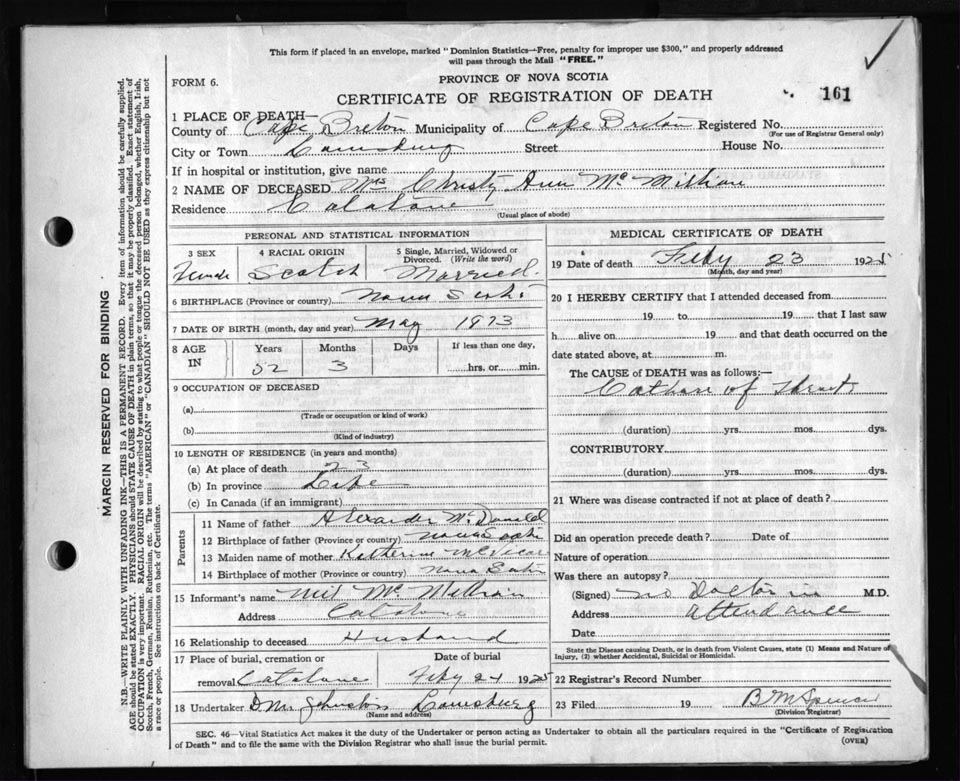 This form if placed in an envelope, marked "Dominion Statistics—Free, penalty for improper use $300," and properly addressed
will pass through the Mail "FREE."
FORM 6.
PROVINCE OF NOVA SCOTIA
CERTIFICATE OF REGISTRATION OF DEATH
161
1 PLACE OF DEATH—
County of Cape Breton Municipality of Cape Breton Registered No.
(For use of Registrar General only)
City or Town Louisburg Street House No.
If in hospital or institution, give name
2 NAME OF DECEASED Mrs Christy Ann Mc Millian
Residence Catalone
(Usual place of abode)
PERSONAL AND STATISTICAL INFORMATION
3 SEX 4 RACIAL ORIGIN 5 Single, Married, Widowed or Divorced. (Write the word)
Female Scotch Married
6 BIRTHPLACE (Province or country) Nova Scotia
7 DATE OF BIRTH (month, day and year) May 1973
8 AGE IN Years Months Days If less than one day,
52 3 hrs. or min.
9 OCCUPATION OF DECEASED
(a)
(Trade or occupation or kind of work)
(b)
(Kind of industry)
10 LENGTH OF RESIDENCE (in years and months)
(a) At place of death 23
(b) In province Life
(c) In Canada (if an immigrant)
Parents
11 Name of father Alexander McDonald
12 Birthplace of father (Province or country) Nova Scotia
13 Maiden name of mother Katherine McVicar
14 Birthplace of mother (Province or country) Nova Scotia
15 Informant's name Neil Mc Millian
Address Catalone
16 Relationship to deceased Husband
17 Place of burial, cremation or Date of burial
removal Catalone Feby 24 1925
18 Undertaker D.M. Johnston Louisburg
(Name and address)
MEDICAL CERTIFICATE OF DEATH
19 Date of death Feby 23 1925
(Month, day and year)
20 I HEREBY CERTIFY that I attended deceased from
19 to 19 that I last saw
h alive on 19 and that death occurred on the
date stated above, at m.
The CAUSE of DEATH was as follows:—
of Throat
(duration) yrs. mos. dys.
CONTRIBUTORY
(duration) yrs. mos. dys.
21 Where was disease contracted if not at place of death?
Did an operation precede death? Date of
Nature of operation
Was there an autopsy?
(Signed) no Doctor in M.D.
Address attendance
Date
State the Disease causing Death, or in death from Violent Causes, state (1) Means and Nature of
Injury, (2) whether Accidental, Suicidal or Homicidal.
22 Registrar's Record Number
23 Filed 19 B M Spencer
(Division Registrar)
SEC. 46—Vital Statistics Act makes it the duty of the Undertaker or person acting as Undertaker to obtain all the particulars required in the "Certificate of Registration
of Death" and to file the same with the Division Registrar who shall issue the burial permit.
(OVER)
MARGIN RESERVED FOR BINDING
N.B.—WRITE PLAINLY WITH UNFADING INK—THIS IS A PERMANENT RECORD. Every item of information should be carefully supplied.
AGE should be stated EXACTLY. PHYSICIANS should STATE CAUSE OF DEATH in plain terms, so that it may be properly classified. Exact statement of
OCCUPATION is very important. RACIAL ORIGIN will be described by stating to what people or tongue the deceased person belonged, whether English, Irish,
Scotch, French, German, Russian, Ruthenian, etc. The terms "AMERICAN" or "CANADIAN" SHOULD NOT BE USED as they express citizenship but not
a race or people. See instructions on back of Certificate.